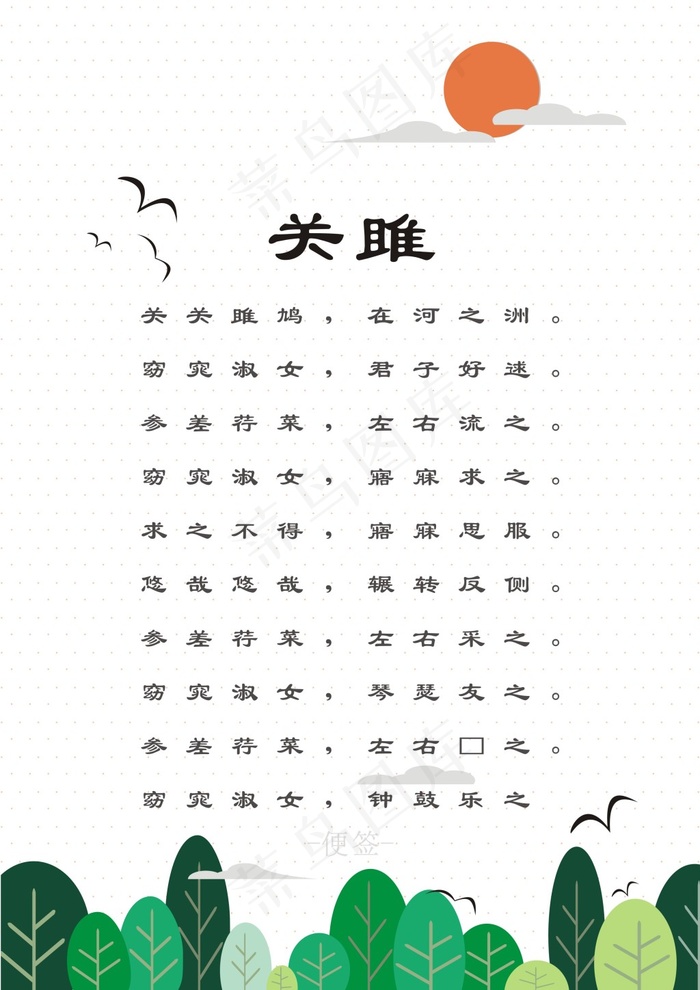 关雎
关关雎鸠，在河之洲。
窈窕淑女，君子好逑。
参差荇菜，左右流之。
窈窕淑女，寤寐求之。
求之不得，寤寐思服。
悠哉悠哉，辗转反侧。
参差荇菜，左右采之。
窈窕淑女，琴瑟友之。
参差荇菜，左右□之。
窈窕淑女，钟鼓乐之
-便签-
菜鸟图库
菜鸟图库
菜鸟图库